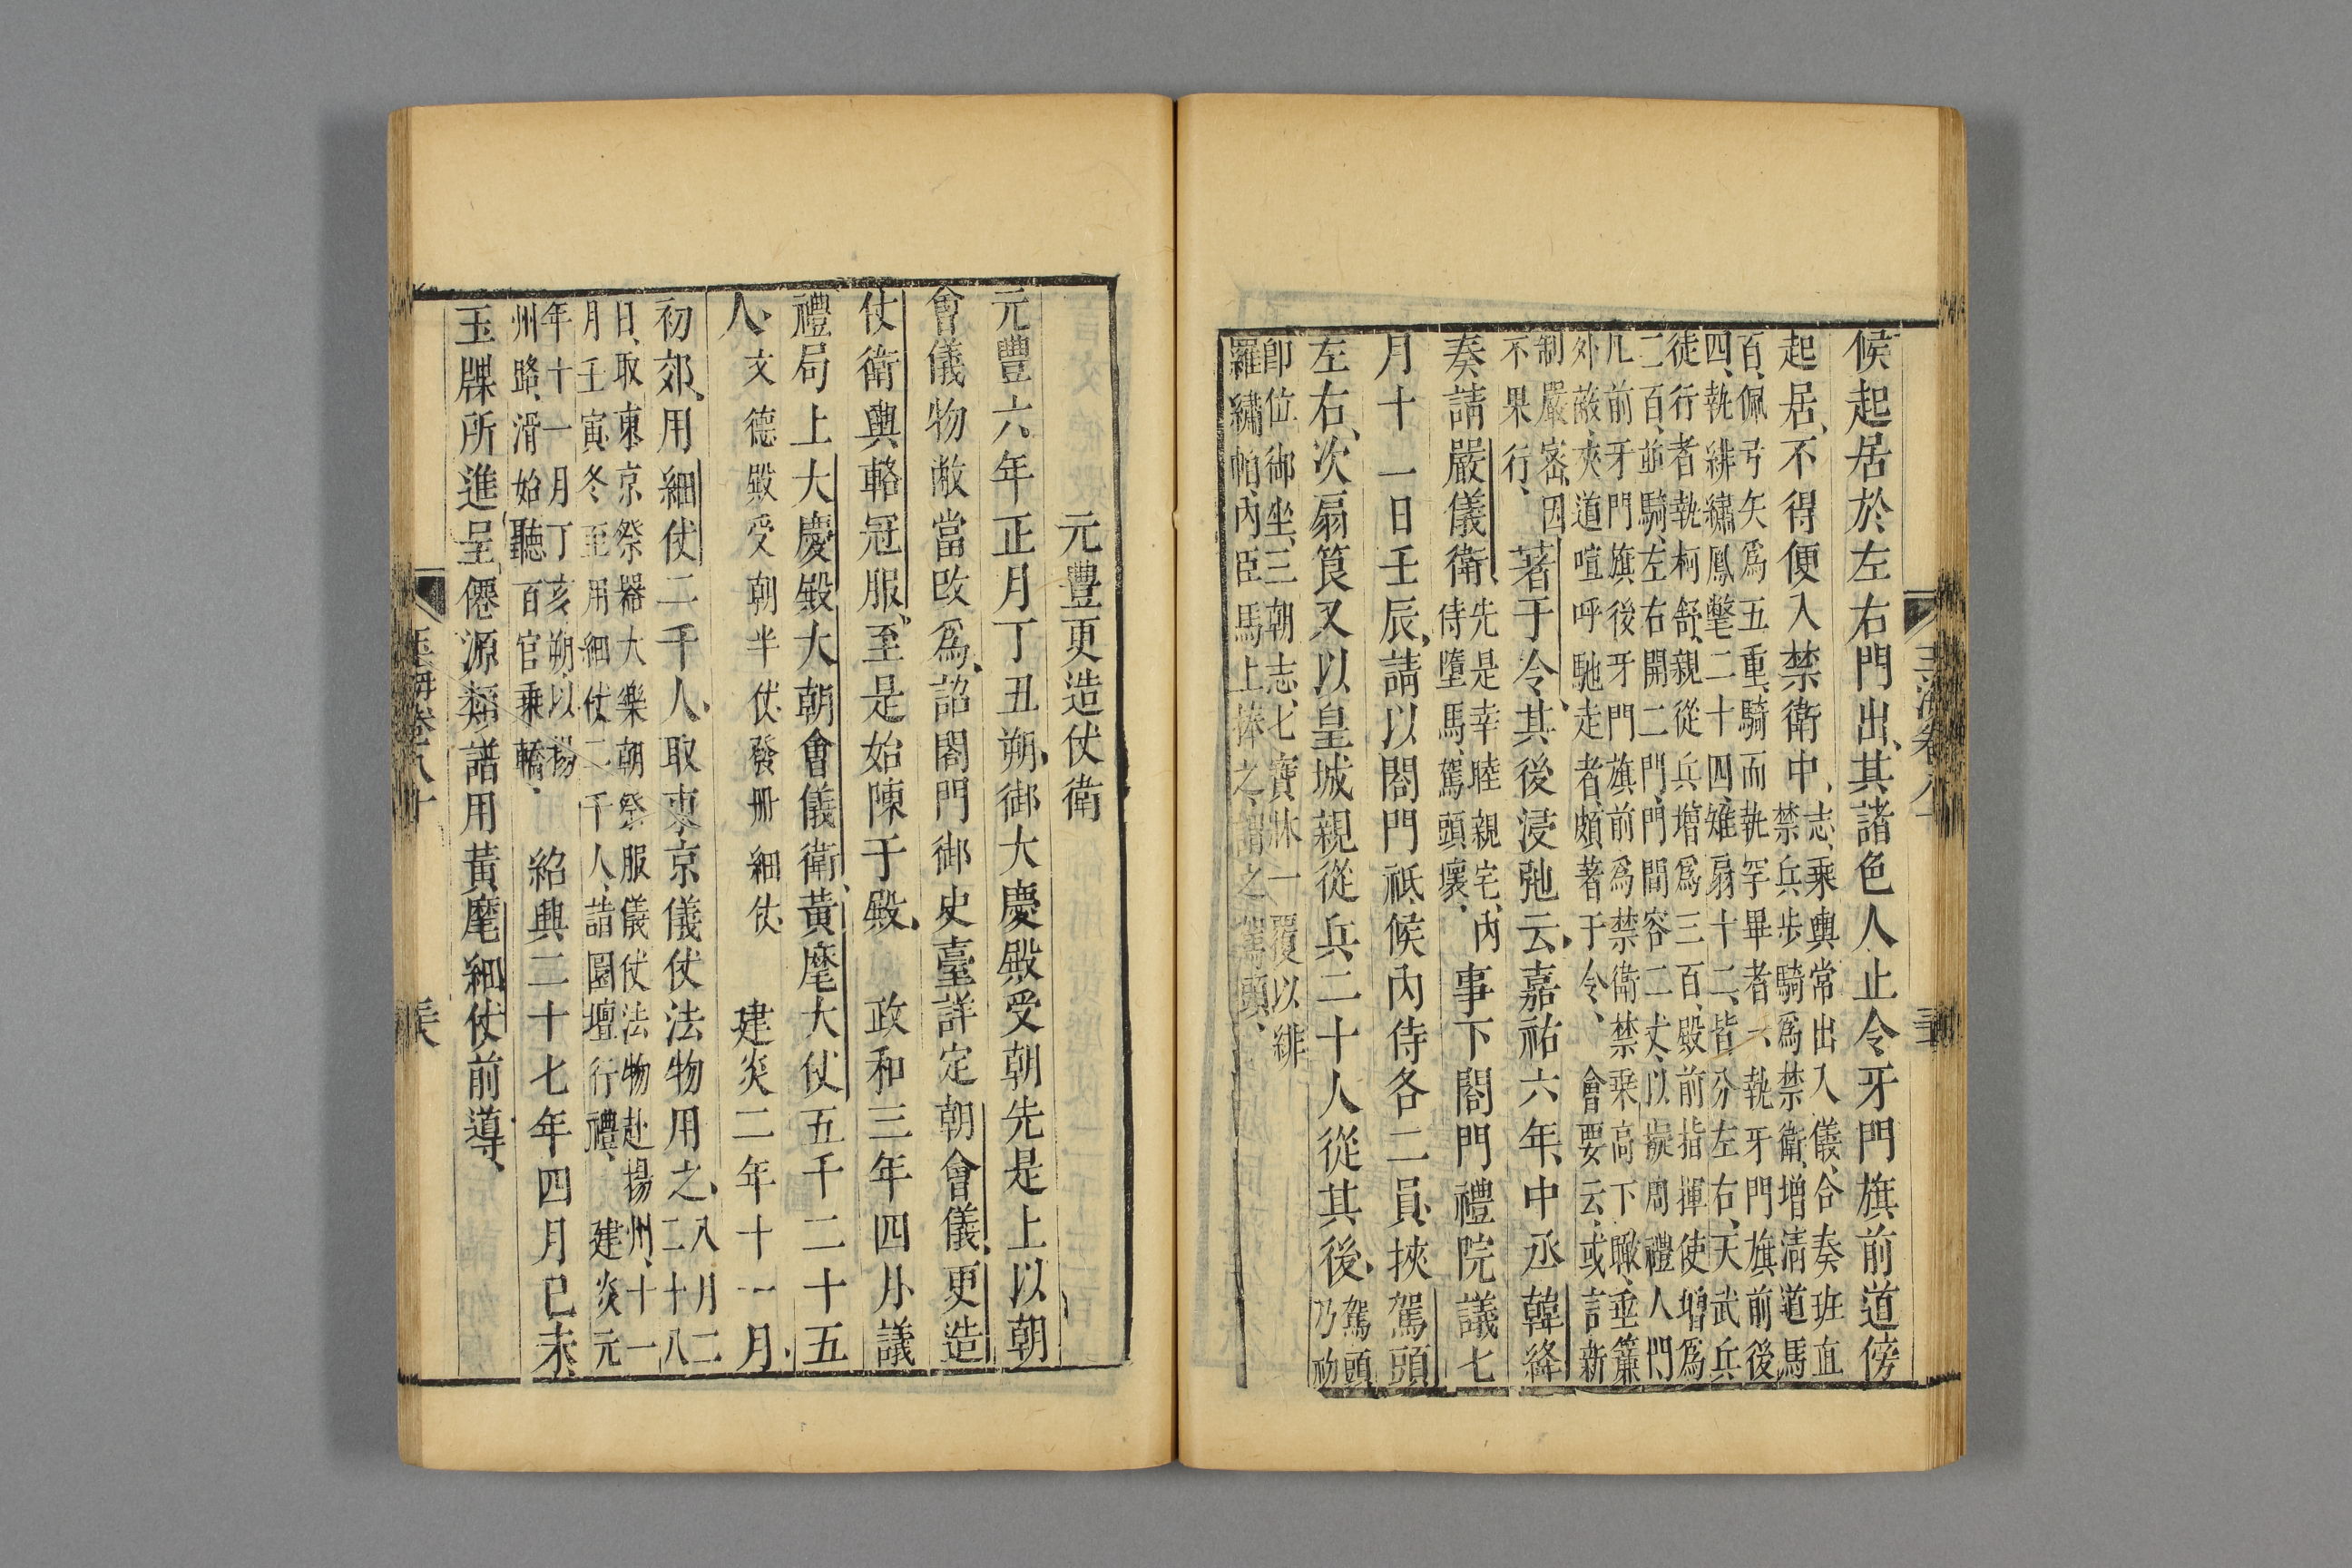 候起居於左右門出其諸色人止令牙門旗前道傍
起居不得便入禁衛中
志乘輿常出入儀合奏班直
禁兵步騎爲禁衛增淸道馬
百佩弓矢爲五重騎而執罕畢者一執牙門旗前後
四執緋繡鳳氅二十四雉扇十二皆分左右天武兵
徒行者執柯舒親從兵增爲三百殿前指揮使增爲
二百並騎左右開二門門間容二丈以擬周禮人門
凡前牙門旗後牙門旗前爲禁衛禁乘高下瞰垂簾
外蔽夾道喧呼馳走者頗著于令會要云或言新
制嚴密因
不果行
著于令其後浸弛云嘉祐六年中丞韓絳
奏請嚴儀衛
先是幸睦親宅內
侍墮馬駕頭壞
事下閤門禮院議七
月十一日壬辰請以閤門祗候內侍各二員挾駕頭
左右次扇筤又以皇城親從兵二十人從其後
駕頭
乃初
卽位御坐三朝志七寶牀一覆以緋
羅繡帕內臣馬上捧之謂之駕頭
玉海卷八十
三
元豐更造仗衛
元豐六年正月丁丑朔御大慶殿受朝先是上以朝
會儀物敝當改爲詔閤門御史臺詳定朝會儀更造
仗衛輿輅冠服至是始陳于殿
政和三年四月議
禮局上大慶殿大朝會儀衛黃麾大仗五千二十五
人
文德殿受朝半仗發册細仗
建炎二年十一月
初郊用細仗二千人取東京儀仗法物用之
八月二
二十八
日取東京祭器大樂朝祭服儀仗法物赴揚州十一
月壬寅冬至用細仗二千人詣圜壇行禮
建炎元
年十一月丁亥朔以揚
州路滑始聽百官乘轎
紹興二十七年四月已未
玉牒所進呈僊源類譜用黃麾細仗前導
玉海卷八十